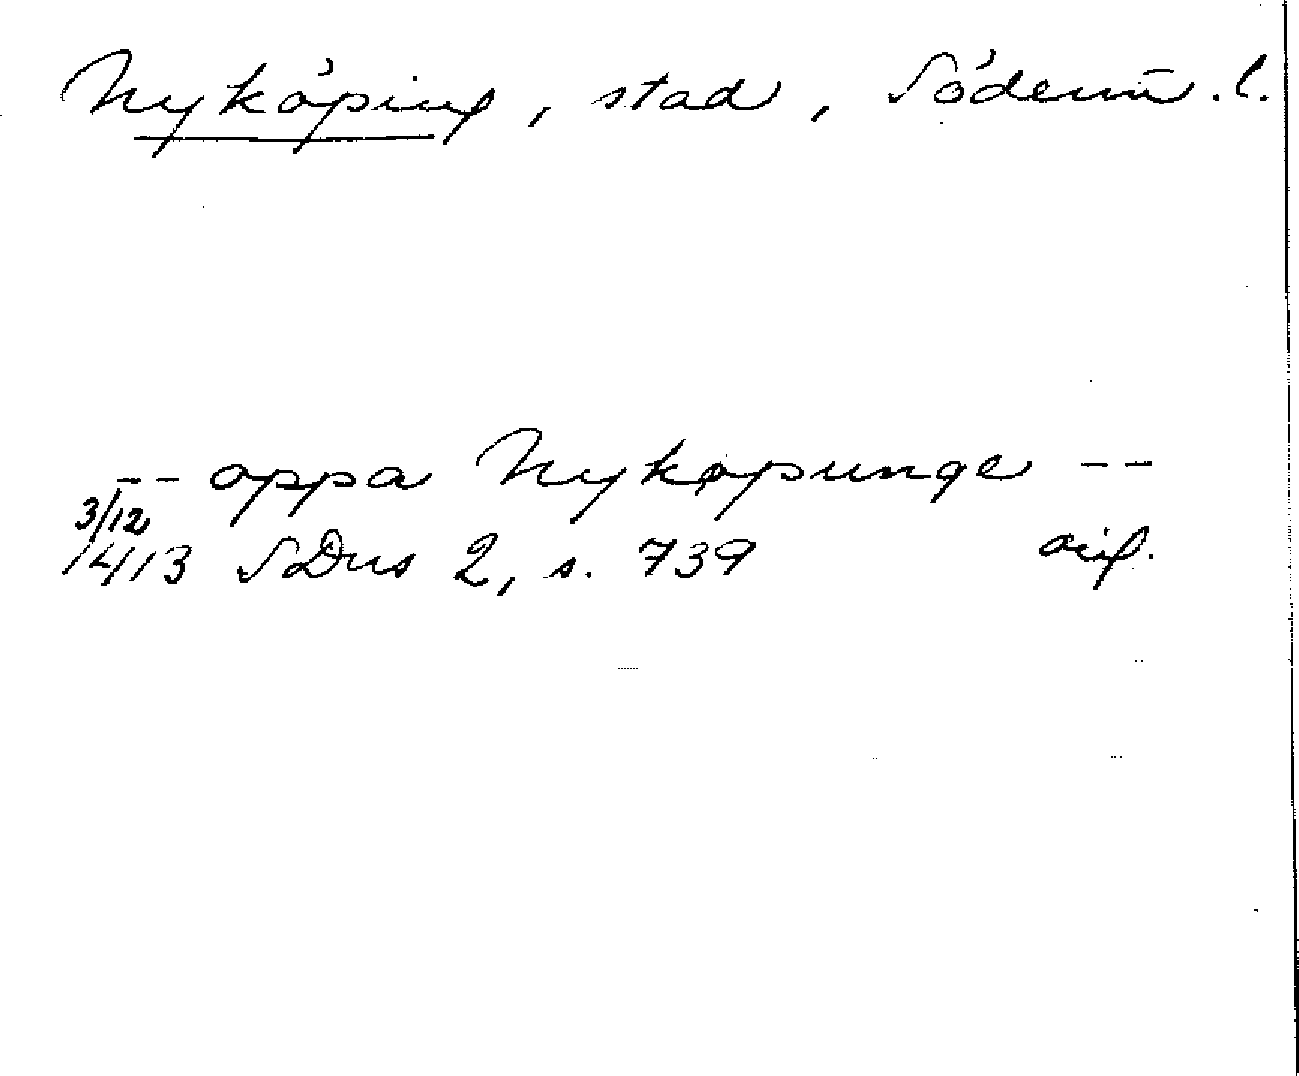 Nyköping, stad, Söderm̄.l.
-- oppa Nykøpunge --
3/12
1413 SDns 2, s. 739 orig.